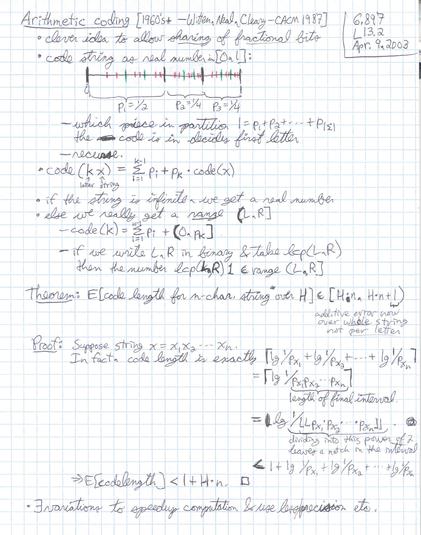 6.897
L13.2
Apr. 9, 2003
Arithmetic coding [1960's+ – Witten, Neal, Cleary – CACM 1987]
• clever idea to allow sharing of fractional bits
• code string as real number in [0,1]:
p₁=1/2 p₂=1/4 p₃=1/4
– which piece in partition 1 = p₁+p₂+⋯+p|Σ|
the code is in decides first letter
– recurse.
• code(kx) = Σ_{i=1}^{k-1} pᵢ + pₖ · code(x)
letter string
• if the string is infinite, we get a real number
• else we really get a range (L,R]
– code(k) = Σ_{i=1}^{k-1} pᵢ + (0, pₖ]
– if we write L,R in binary & take lcp(L,R)
then the number lcp(L,R)1 ∈ range (L,R]
Theorem: E[code length for n-char. string over H] ∈ [H·n, H·n+1)
additive error now
over whole string
not per letter
Proof: Suppose string x = x₁x₂⋯xₙ.
In fact, code length is exactly ⌈lg 1/p_{x₁} + lg 1/p_{x₂} + ⋯ + lg 1/p_{xₙ}⌉
= ⌈lg 1/p_{x₁}p_{x₂}⋯p_{xₙ}⌉
length of final interval.
= lg 1/⌊⌊p_{x₁}·p_{x₂}⋯p_{xₙ}⌋⌋.
dividing into this power of 2
leaves a notch in the interval
< 1 + lg 1/p_{x₁} + lg 1/p_{x₂} + ⋯ + lg 1/p_{xₙ}
⇒ E[code length] < 1 + H·n. □
• ∃ variations to speedup computation & use less precision etc.